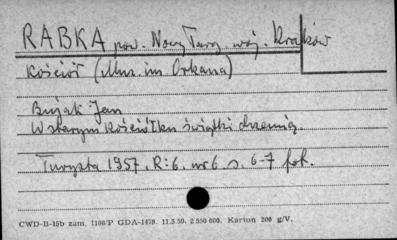 RABKA pow. Nowy Targ. woj. Kraków
Kościół (Muz. im. Orkana)
Bujak Jan
W starym kościółku świątki drzemią
Turysta 1957. R:6. nr 6 s. 6-7 fot.
CWD-B-15b zam. 1106/P GDA-1479. 11.5.59. 2 550 000. Karton 200 g/V.